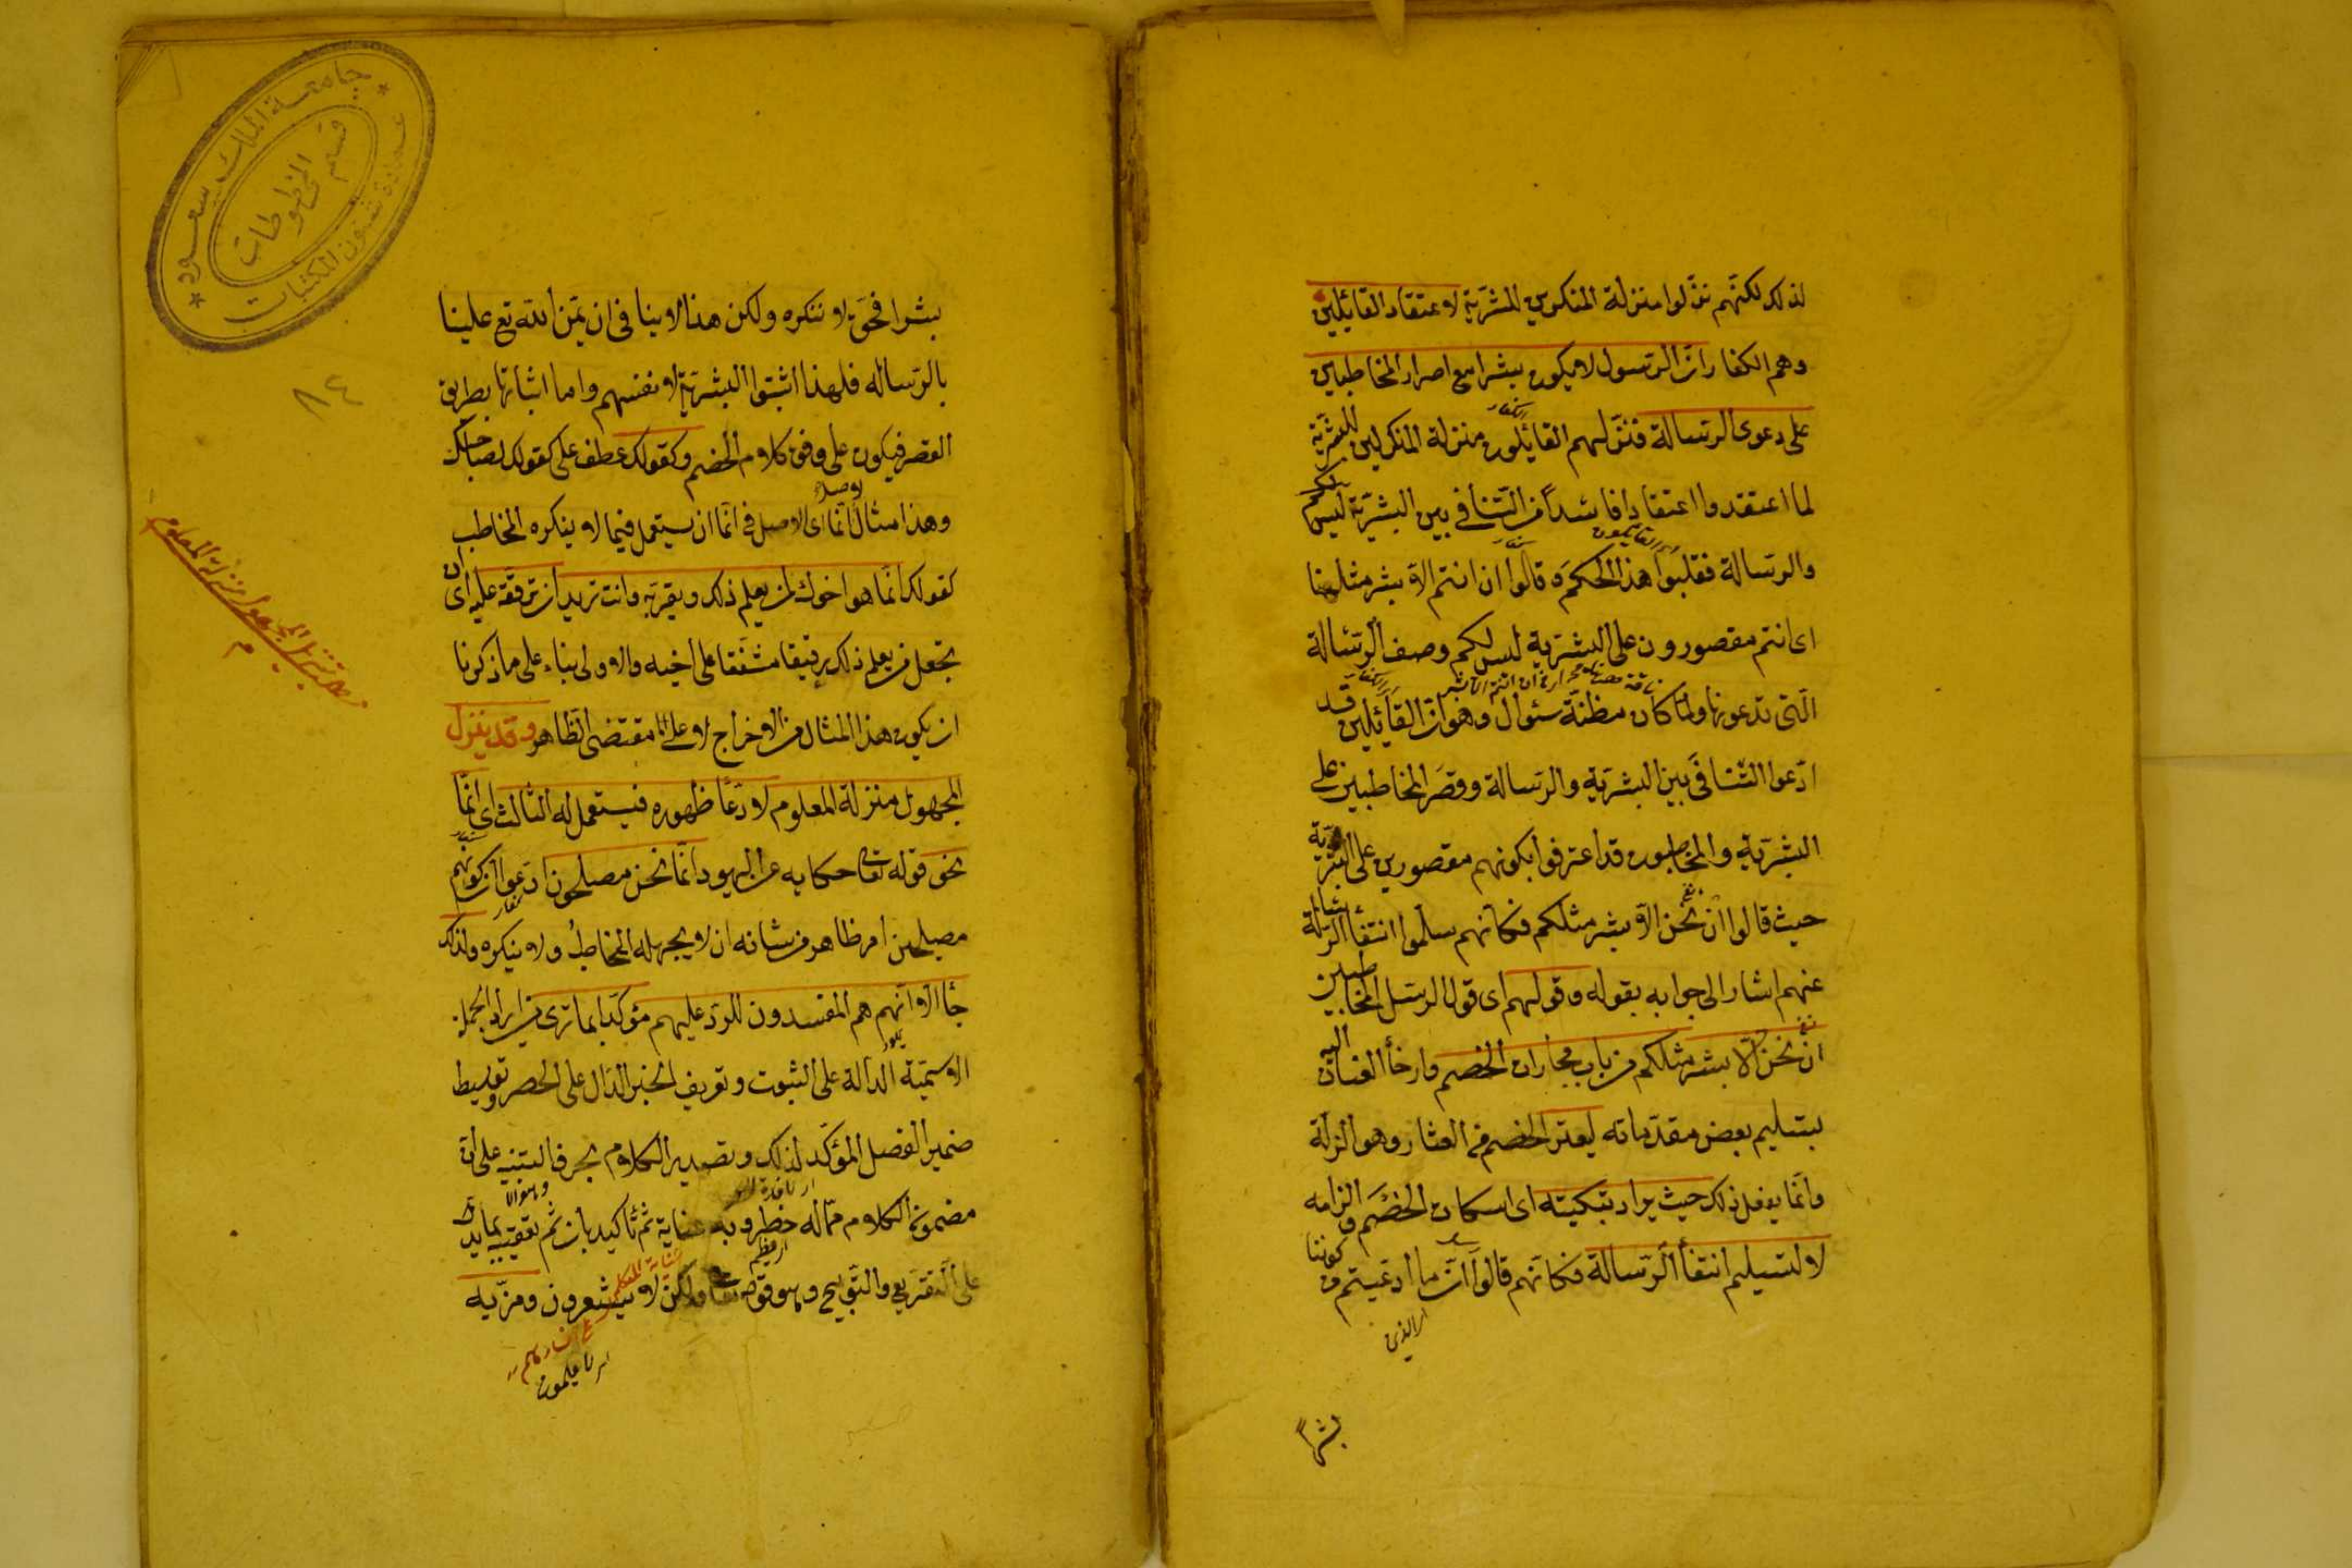 لذلك لكنهم نزلوا منزلة المنكرين للبشرية لاعتقاد القائلين
وهم الكفار ان الرسول لا يكون بشرا مع اصرار المخاطبين
على دعوى الرسالة فنزلهم القائلون منزلة المنكرين للبشرية
الكفار
لما اعتقدوا اعتقادا فاسدا من التنافي بين البشرية
والرسالة فقلبوا هذا الحكم وقالوا ان انتم الا بشر مثلنا
اى القائلون
اى انتم مقصورون على البشرية ليس لكم وصف الرسالة
التى تدعونها ولما كان مظنة سئوال وهو ان القائلين قد
ادعوا التنافى بين البشرية والرسالة وقصر المخاطبين على
البشرية والمخاطبون قد اعترفوا بكونهم مقصورين على البشرية
حيث قالوا ان نحن الا بشر مثلكم فكانهم سلموا انتفأ الرسالة
عنهم اشار الى جوابه بقوله وقولهم اى قول الرسل المخاطبين
ان نحن الا بشر مثلكم من باب مجارات الخصم وارخأ العنان اليه
بتسليم بعض مقدماته ليعثر الخصم من العثار وهو الزلة
وانما يفعل ذلك حيث يراد تبكيته اى اسكات الخصم والزامه
لا لتسليم انتفأ الرسالة فكانهم قالوا ان ما ادعيتم من كوننا
اى الذى
بشراً
جامعة الملك سعود
عمادة شئون المكتبات
قسم المخطوطات
٨٤
بشرا فحق لا ننكره ولكن هذا لا ينافى ان يمن الله تع علينا
بالرسالة فلهذا اثبتوا البشرية لانفسهم واما اثباتها بطريق
القصر فيكون على وفق كلام الخصم وكقولك عطف على كقولك لصاحبك
وهذا مثال لانما اى الاصل فى انما ان يستعمل فيما لا ينكره المخاطب
كقولك انما هو اخوك لمن يعلم ذلك ويقر به وانت تريد ان ترققه عليه اى ان
تجعل من يعلم ذلك رقيقا مشفقا على اخيه والاولى بناء على ما ذكرنا
ان يكون هذا المثال من الاخراج لا على مقتضى الظاهر وقد ينزل
المجهول منزلة المعلوم لادعأ ظهوره فيستعمل له الثالث اى انما
نحو قوله تعالى حكاية عن اليهود انما نحن مصلحون ادعوا ان كونهم
مصلحين امر ظاهر من شانه ان لا يجهله المخاطب ولا ينكره ولذلك
جأ الا انهم هم المفسدون للرد عليهم مؤكدا بما ترى من ايراد الجملة
الاسمية الدالة على الثبوت وتعريف الخبر الدال على الحصر وتوسيط
ضمير الفصل المؤكد لذلك وتصدير الكلام بحرف التنبيه على ان
مضمون الكلام مما له خطر وبه عناية ثم تأكيد بان ثم تعقيبه بما يدل
على التقريع والتوبيخ وهو قوله تعالى ولكن لا يشعرون ومزية
اى لا يعلمون
تنزيل المجهول منزلة المعلوم